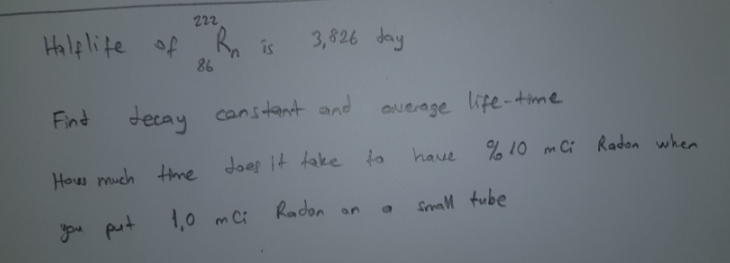 Halflife of ²²²₈₆Rn is 3,826 day
Find decay constant and average life-time
How much time does it take to have %10 mCi Radon when
you put 1,0 mCi Radon on a small tube